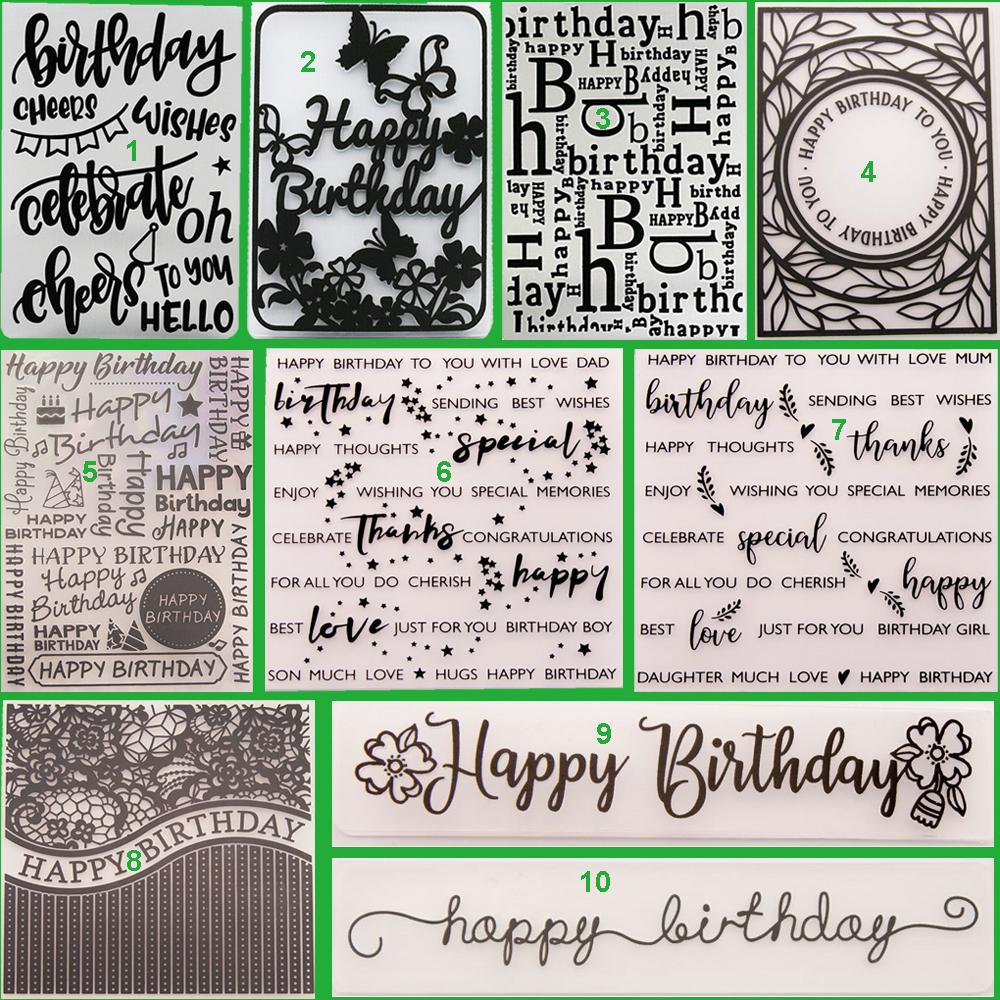 birthday
CHEERS
WISHES
1
celebrate
oh
cheers
TO YOU
HELLO
2
Happy
Birthday
birthday H h
happy H birthday
birthday
B HAPPY
h
3
birthday
happy
HAPPY
birthday
happy H
birthd
lay
HAPPY
B
HAPPY
b
H
h
birthday
day
birthd
birthday
happy
4
HAPPY BIRTHDAY TO YOU · HAPPY BIRTHDAY TO YOU ·
Happy Birthday
HAPPY
BIRTHDAY
Happy Birthday
Happy
Birthday
5
Happy
Birthday
HAPPY
Birthday
HAPPY
BIRTHDAY
HAPPY
HAPPY BIRTHDAY
HAPPY BIRTHDAY
HAPPY BIRTHDAY
Happy
Birthday
HAPPY
BIRTHDAY
HAPPY
BIRTHDAY
HAPPY BIRTHDAY
HAPPY BIRTHDAY TO YOU WITH LOVE DAD
birthday SENDING BEST WISHES
HAPPY THOUGHTS special
6
ENJOY WISHING YOU SPECIAL MEMORIES
CELEBRATE Thanks CONGRATULATIONS
FOR ALL YOU DO CHERISH happy
BEST love JUST FOR YOU BIRTHDAY BOY
SON MUCH LOVE HUGS HAPPY BIRTHDAY
HAPPY BIRTHDAY TO YOU WITH LOVE MUM
birthday SENDING BEST WISHES
7
HAPPY THOUGHTS thanks
ENJOY WISHING YOU SPECIAL MEMORIES
CELEBRATE special CONGRATULATIONS
FOR ALL YOU DO CHERISH happy
BEST love JUST FOR YOU BIRTHDAY GIRL
DAUGHTER MUCH LOVE HAPPY BIRTHDAY
HAPPY BIRTHDAY
8
9
Happy Birthday
10
happy birthday